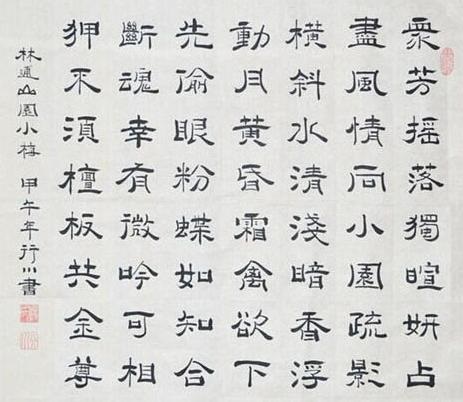 衆芳搖落獨暄妍占
盡風情向小園疏影
橫斜水清淺暗香浮
動月黃昏霜禽欲下
先偷眼粉蝶如知合
斷魂幸有微吟可相
狎不須檀板共金尊
林逋山園小梅 甲午年行川書